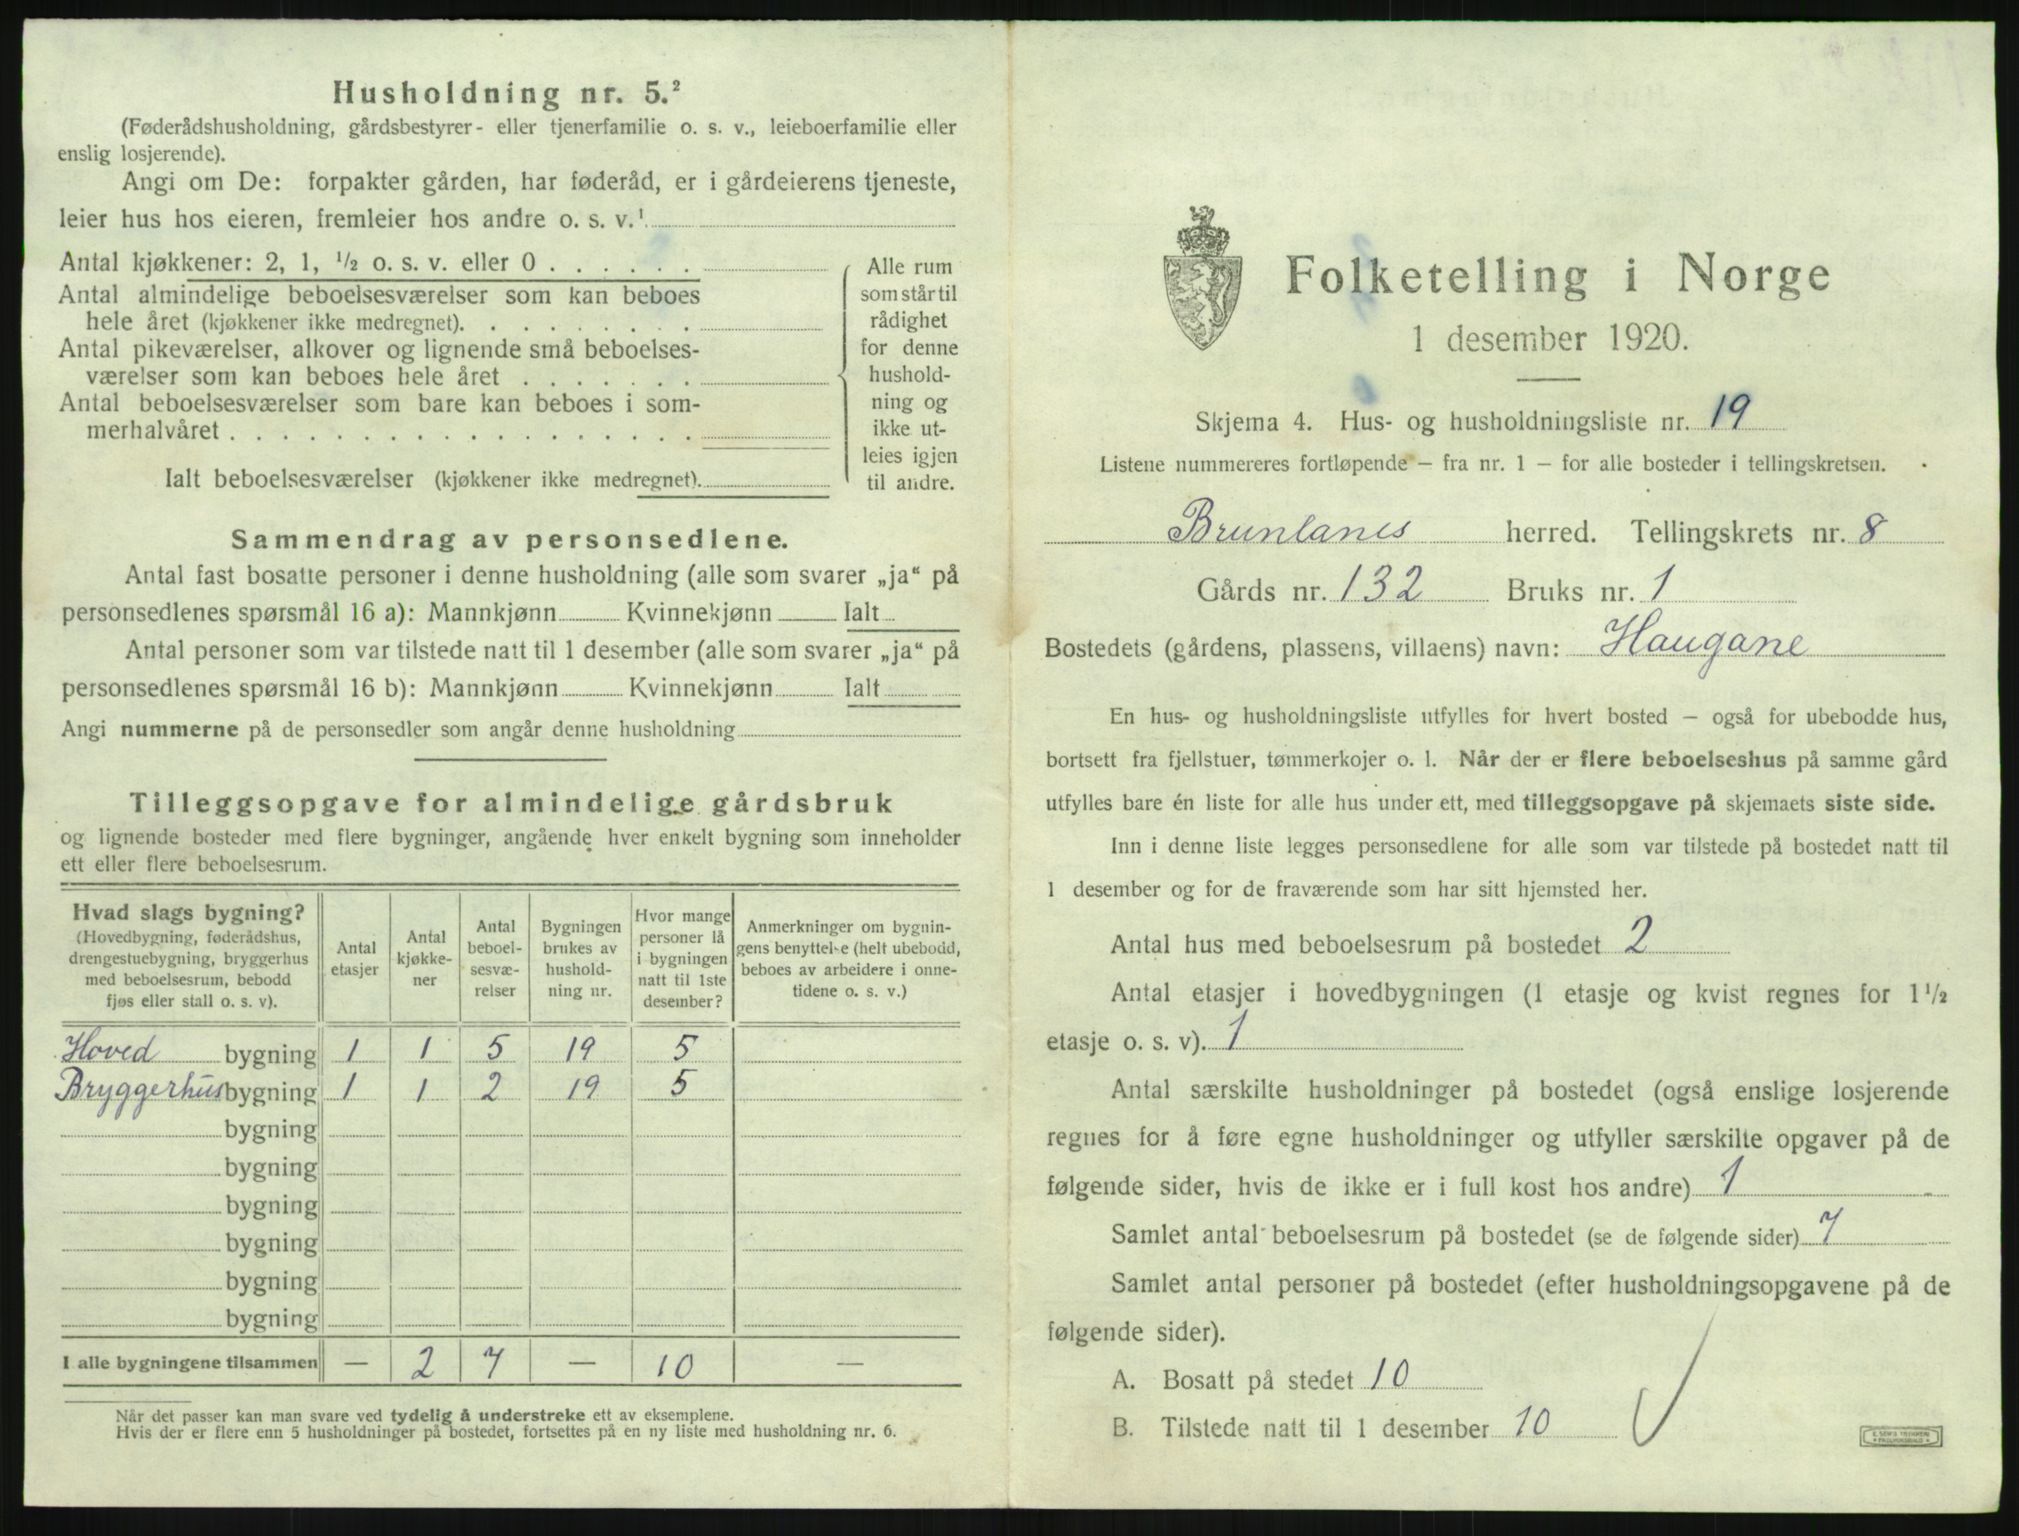 Husholdning nr. 5.²
(Føderådshusholdning, gårdsbestyrer- eller tjenerfamilie o. s. v., leieboerfamilie eller
enslig losjerende).
Angi om De: forpakter gården, har føderåd, er i gårdeierens tjeneste,
leier hus hos eieren, fremleier hos andre o. s. v.¹
Antal kjøkkener: 2, 1, ½ o. s. v. eller 0 . . . . . .
Antal almindelige beboelsesværelser som kan beboes
hele året (kjøkkener ikke medregnet). . . . . . . . .
Antal pikeværelser, alkover og lignende små beboelses-
værelser som kan beboes hele året . . . . . . .
Antal beboelsesværelser som bare kan beboes i som-
merhalvåret . . . . . . . . . . . . . . . . . .
Ialt beboelsesværelser (kjøkkener ikke medregnet).
Alle rum
som står til
rådighet
for denne
hushold-
ning og
ikke ut-
leies igjen
til andre.
Sammendrag av personsedlene.
Antal fast bosatte personer i denne husholdning (alle som svarer „ja“ på
personsedlenes spørsmål 16 a): Mannkjønn Kvinnekjønn Ialt
Antal personer som var tilstede natt til 1 desember (alle som svarer „ja“ på
personsedlenes spørsmål 16 b): Mannkjønn Kvinnekjønn Ialt
Angi nummerne på de personsedler som angår denne husholdning
Tilleggsopgave for almindelige gårdsbruk
og lignende bosteder med flere bygninger, angående hver enkelt bygning som inneholder
ett eller flere beboelsesrum.
Hvad slags bygning?
(Hovedbygning, føderådshus,
drengestuebygning, bryggerhus
med beboelsesrum, bebodd
fjøs eller stall o. s. v).
Antal
etasjer
Antal
kjøkke-
ner
Antal
beboel-
sesvæ-
relser
Bygningen
brukes av
hushold-
ning nr.
Hvor mange
personer lå
i bygningen
natt til 1ste
desember?
Anmerkninger om bygnin-
gens benyttelse (helt ubebodd,
beboes av arbeidere i onne-
tidene o. s. v.)
Hoved bygning 1 1 5 19 5
Bryggerhus bygning 1 1 2 19 5
bygning
bygning
bygning
bygning
bygning
bygning
I alle bygningene tilsammen — 2 7 — 10 —
Når det passer kan man svare ved tydelig å understreke ett av eksemplene.
Hvis der er flere enn 5 husholdninger på bostedet, fortsettes på en ny liste med husholdning nr. 6.
Folketelling i Norge
1 desember 1920.
Skjema 4. Hus- og husholdningsliste nr. 19
Listene nummereres fortløpende – fra nr. 1 – for alle bosteder i tellingskretsen.
Brunlanes herred. Tellingskrets nr. 8
Gårds nr. 132 Bruks nr. 1
Bostedets (gårdens, plassens, villaens) navn: Haugane
En hus- og husholdningsliste utfylles for hvert bosted – også for ubebodde hus,
bortsett fra fjellstuer, tømmerkojer o. l. Når der er flere beboelseshus på samme gård
utfylles bare én liste for alle hus under ett, med tilleggsopgave på skjemaets siste side.
Inn i denne liste legges personsedlene for alle som var tilstede på bostedet natt til
1 desember og for de fraværende som har sitt hjemsted her.
Antal hus med beboelsesrum på bostedet 2
Antal etasjer i hovedbygningen (1 etasje og kvist regnes for 1½
etasje o. s. v). 1
Antal særskilte husholdninger på bostedet (også enslige losjerende
regnes for å føre egne husholdninger og utfyller særskilte opgaver på de
følgende sider, hvis de ikke er i full kost hos andre) 1
Samlet antal beboelsesrum på bostedet (se de følgende sider) 7
Samlet antal personer på bostedet (efter husholdningsopgavene på de
følgende sider).
A. Bosatt på stedet 10
B. Tilstede natt til 1 desember 10